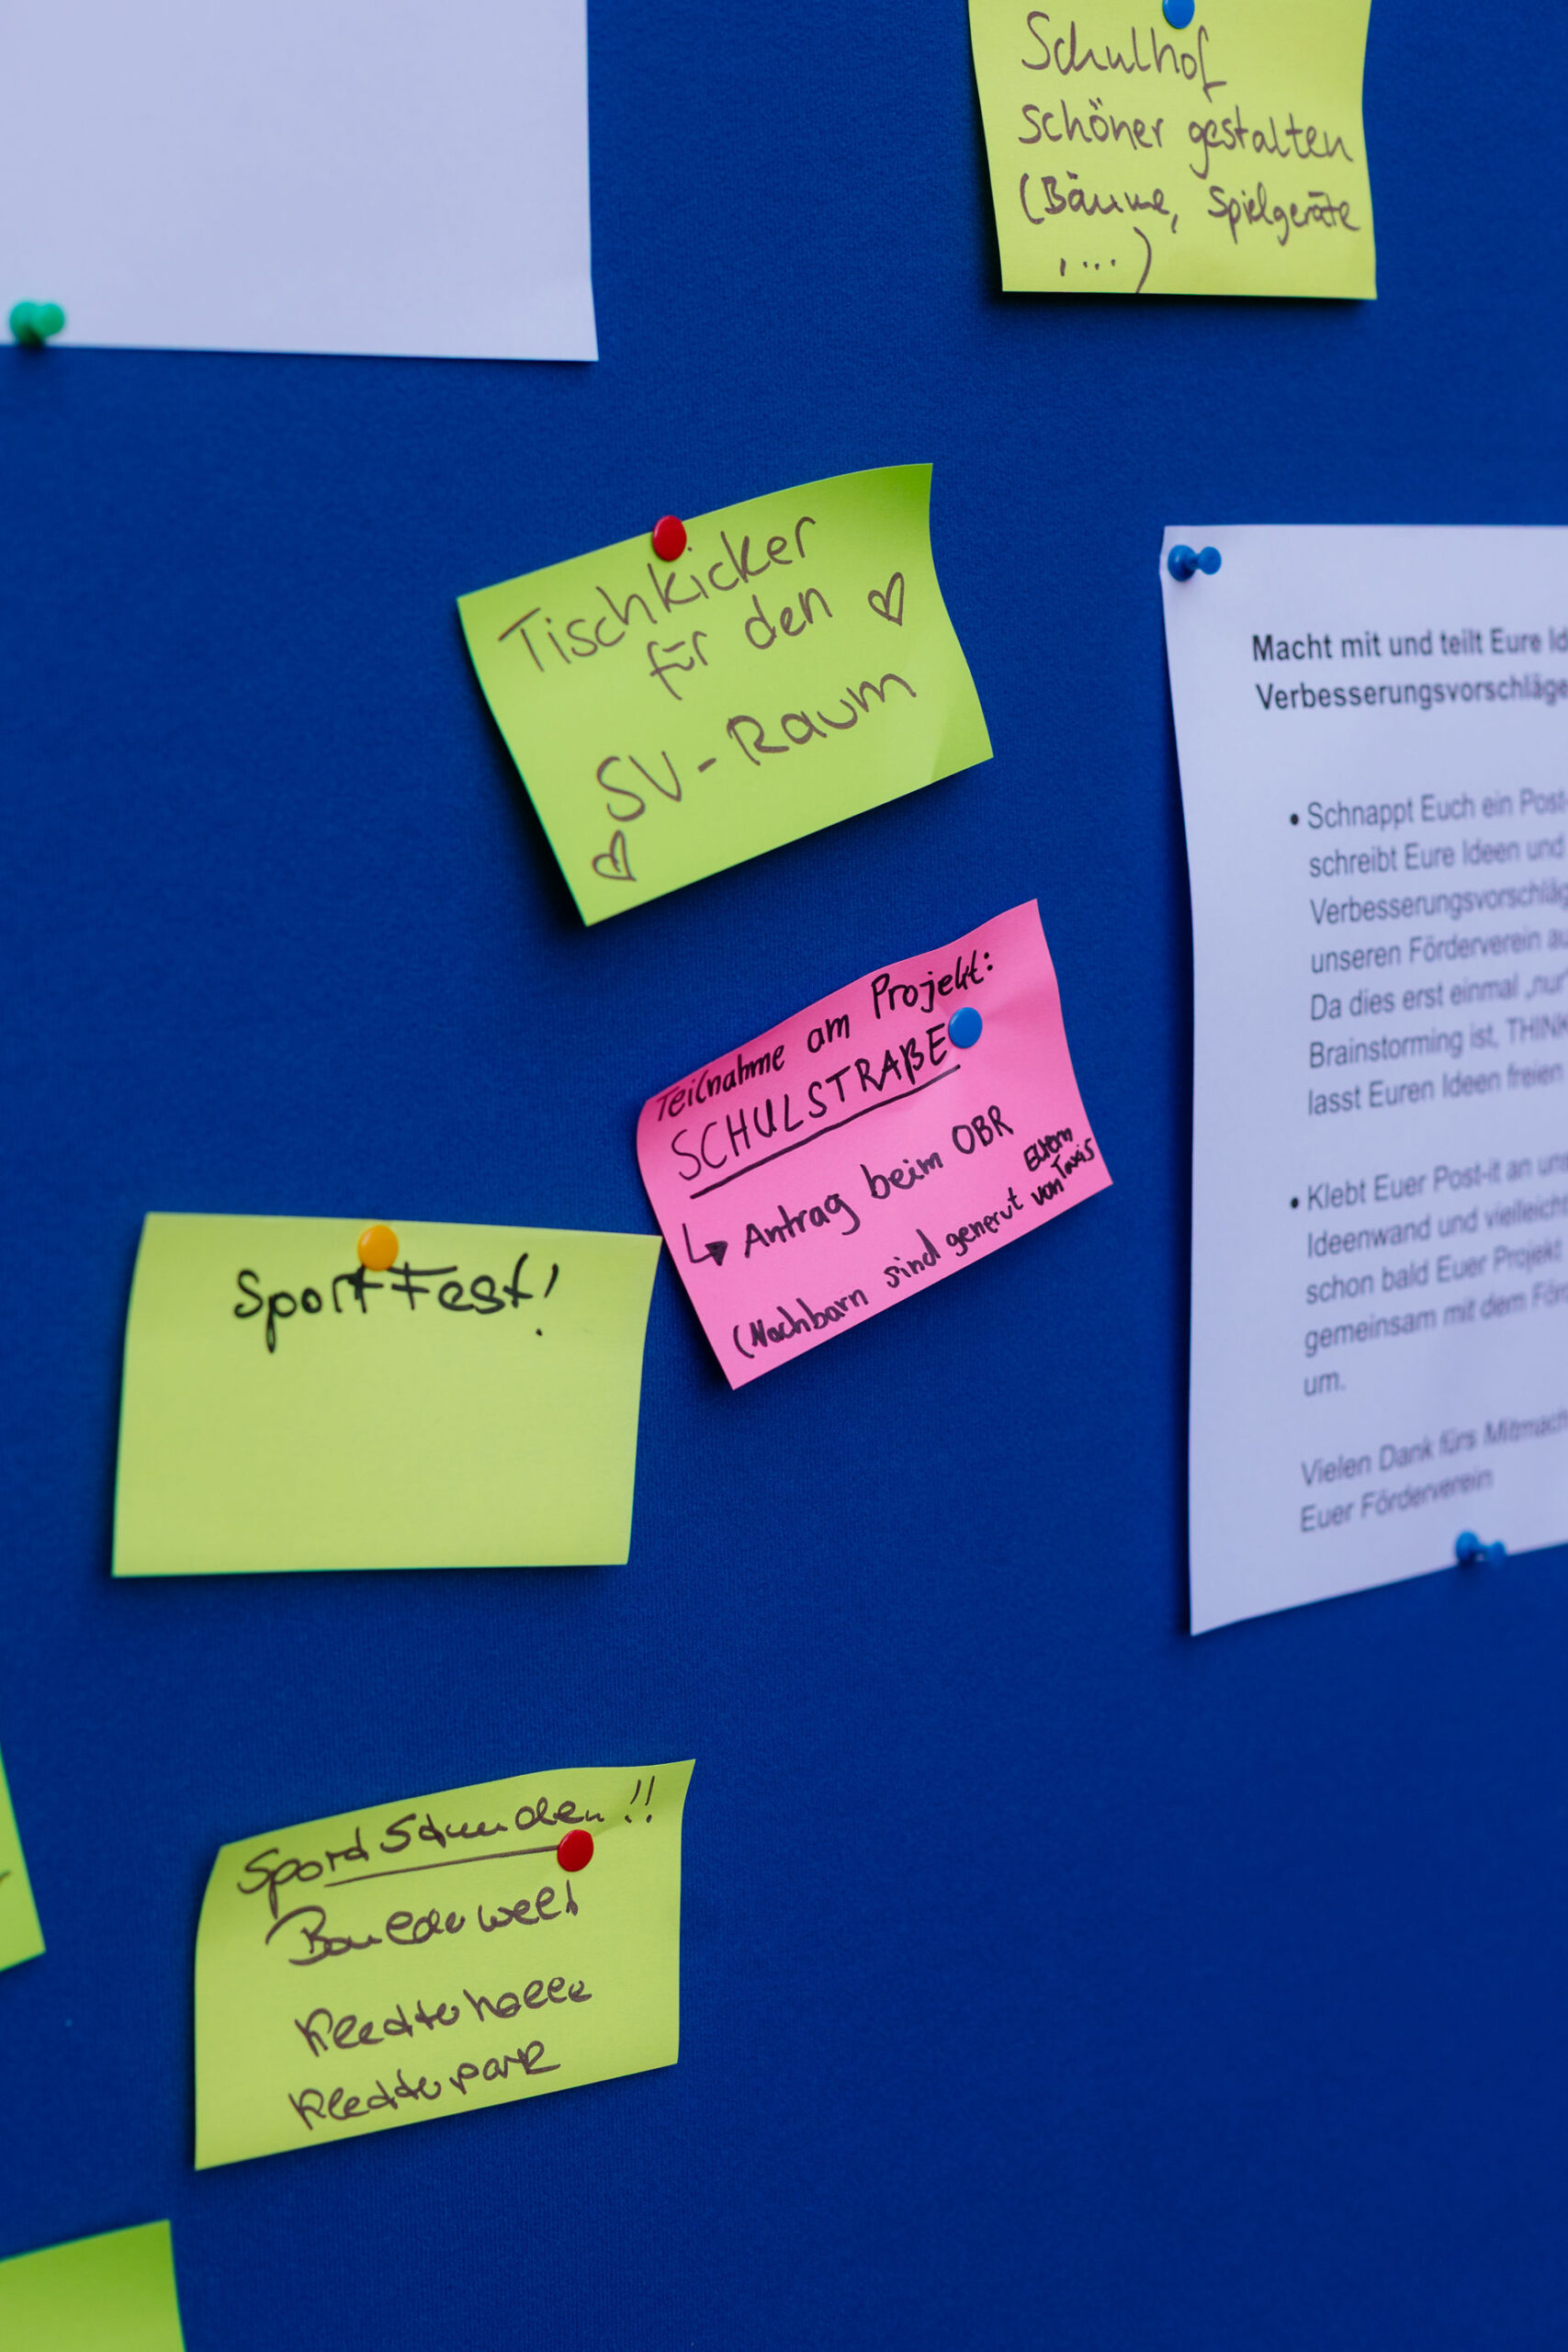 Schulhof
schöner gestalten
(Bäume, Spielgeräte
, ...)
Tischkicker
für den
SV-Raum
Macht mit und teilt Eure Id
Verbesserungsvorschläge
• Schnappt Euch ein Post-
schreibt Eure Ideen und
Verbesserungsvorschläg
unseren Förderverein au
Da dies erst einmal „nur“
Brainstorming ist, THINK
lasst Euren Ideen freien
• Klebt Euer Post-it an uns
Ideenwand und vielleicht
schon bald Euer Projekt
gemeinsam mit dem Förd
um.
Vielen Dank fürs Mitmach
Euer Förderverein
Teilnahme am Projekt:
SCHULSTRAßE
↳ Antrag beim OBR
(Nachbarn sind genervt von Eltern
Taxis
Sportfest!
Sport Stunden!!
Boulderwelt
Kletterhalle
Kletterpark